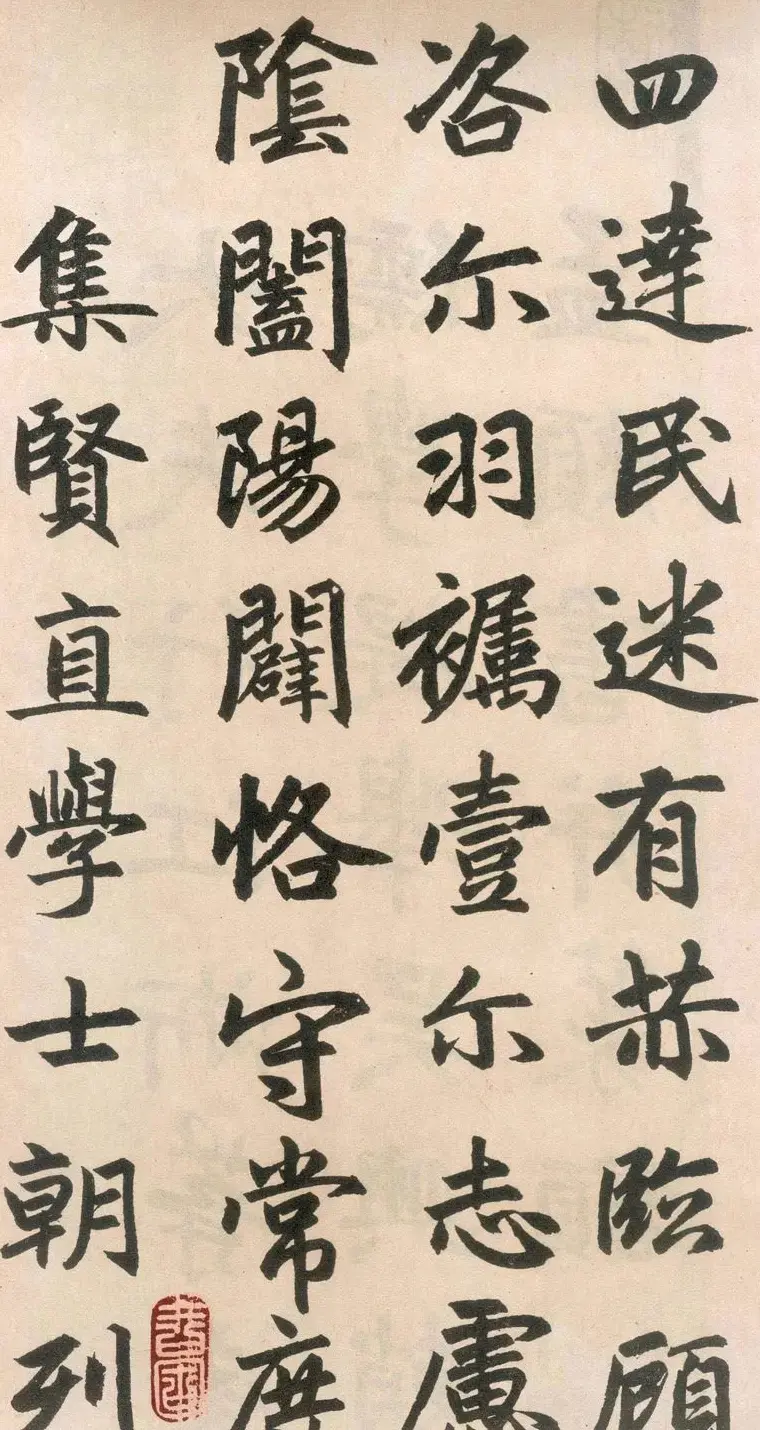 四達民迷有赫臨顧
咨尓羽壹尓志慮
陰闔陽闢恪守常度
集賢直學士朝列